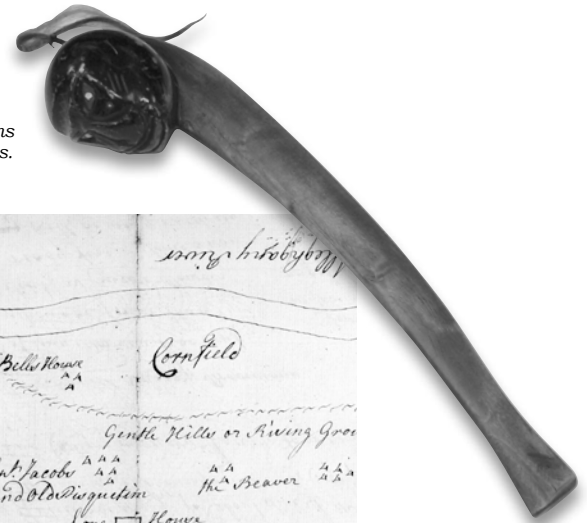 ns
s.
Alleghgany River
Bells House
Cornfield
Gentle Hills or Rising Grou
Jacobs
the Beaver
nd Old Disquetim
Long House